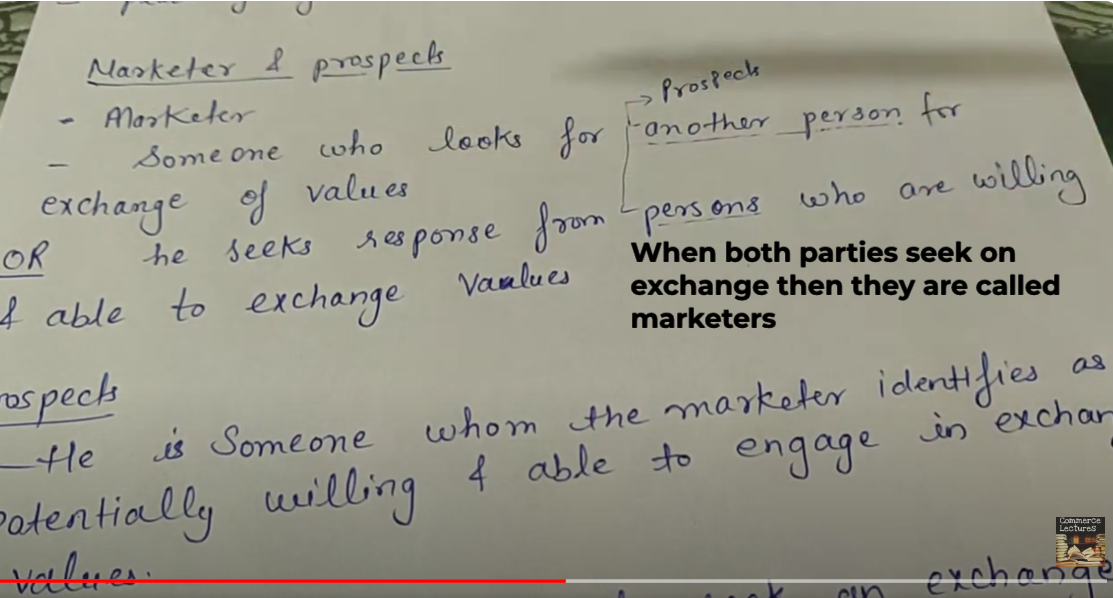 Marketer & prospects
- Marketer
→ Prospects
- Someone who looks for another person for
exchange of values
OR he seeks response from persons who are willing
& able to exchange Vaalues
When both parties seek on
exchange then they are called
marketers
ospects
- He is Someone whom the marketer identifies as
Potentially willing & able to engage in exchan
values.
an exchange
Commerce
Lectures